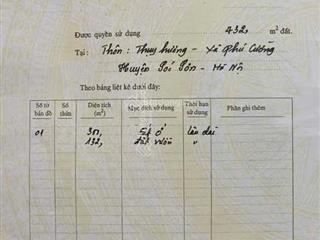 Được quyền sử dụng 432, m² đất.
Tại: Thôn: Thụy hương - Xã Phú Cường
Huyện Sóc Sơn - Hà Nội
Theo bảng liệt kê dưới đây:
Số tờ bản đồ Số thửa Diện tích (m²) Mục đích sử dụng Thời hạn sử dụng Phần ghi thêm
01 Đất ở lâu dài
132, đất vườn "